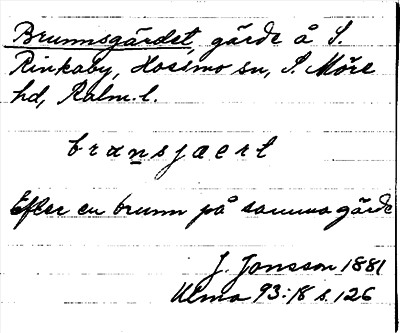 Brunnsgärdet, gärde å S.
Rinkaby, Hossmo sn, S. Möre
hd, Kalm. l.
brɑnsjæert
Efter en brunn på samma gärde
J. Jonsson 1881
Ulma 93:18 s. 126